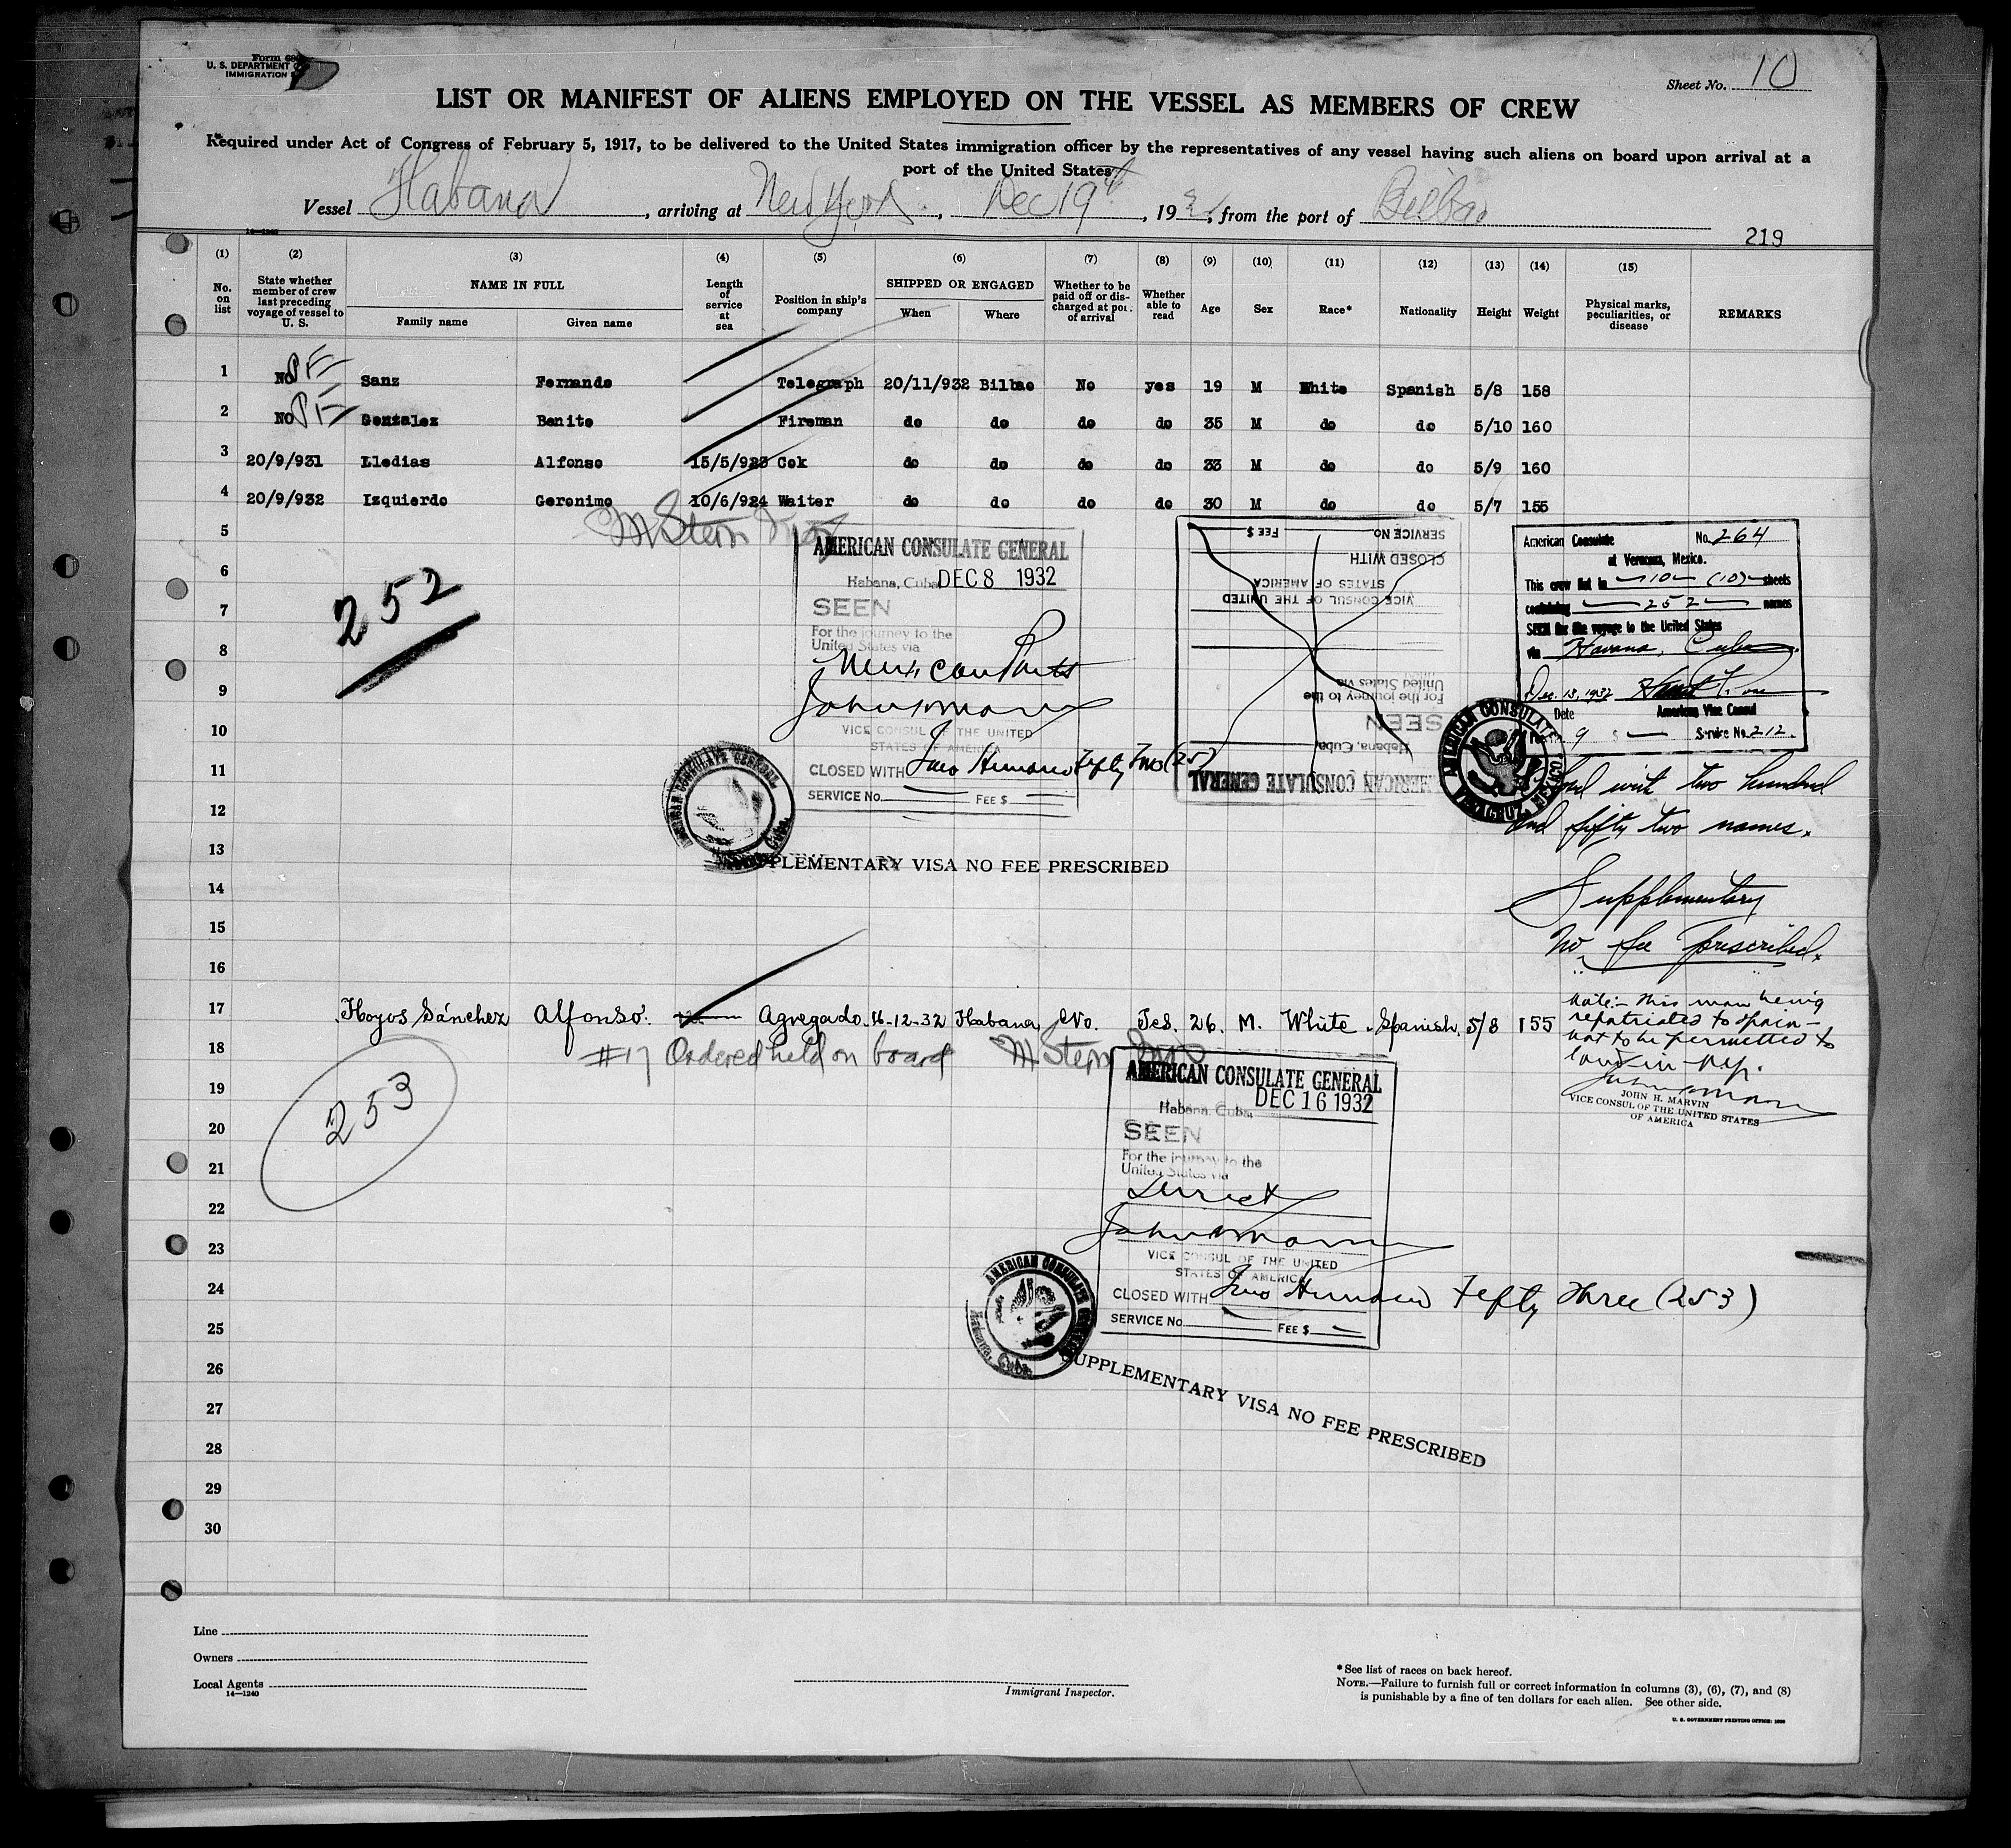 Form 680
U. S. DEPARTMENT
IMMIGRATION
Sheet No. 10
LIST OR MANIFEST OF ALIENS EMPLOYED ON THE VESSEL AS MEMBERS OF CREW
Required under Act of Congress of February 5, 1917, to be delivered to the United States immigration officer by the representatives of any vessel having such aliens on board upon arrival at a
port of the United States
Vessel Habana, arriving at New York, Dec 19th, 1932, from the port of Bilbao
14—1240
219
(1) (2) (3) (4) (5) (6) (7) (8) (9) (10) (11) (12) (13) (14) (15)
No. on list | State whether member of crew last preceding voyage of vessel to U. S. | NAME IN FULL | Family name | Given name | Length of service at sea | Position in ship's company | SHIPPED OR ENGAGED | When | Where | Whether to be paid off or discharged at port of arrival | Whether able to read | Age | Sex | Race* | Nationality | Height | Weight | Physical marks, peculiarities, or disease | REMARKS
1 No PE Sanz Fernando Telegraph 20/11/932 Bilbao No yes 19 M White Spanish 5/8 158
2 No PE Gonzalez Benito Fireman do do do do 35 M do do 5/10 160
3 20/9/931 Lledias Alfonso 15/5/923 Cok do do do do 33 M do do 5/9 160
4 20/9/932 Izquierdo Geronimo 10/6/924 Waiter do do do do 30 M do do 5/7 155
M Stern
5
6
7
8
9
10
11
12
13
14
15
16
252
AMERICAN CONSULATE GENERAL
Habana, Cuba DEC 8 1932
SEEN
For the journey to the
United States via
Mexican Ports
VICE CONSUL OF THE UNITED
STATES OF AMERICA
CLOSED WITH Two Hundred Fifty Two (252)
SERVICE No. FEE $
AMERICAN CONSULATE GENERAL
Cuba.
SUPPLEMENTARY VISA NO FEE PRESCRIBED
AMERICAN CONSULATE GENERAL
Habana, Cuba,
SEEN
For the journey to the
United States via
VICE CONSUL OF THE UNITED
STATES OF AMERICA
CLOSED WITH
SERVICE NO FEE $
American Consulate No. 264
at Veracruz, Mexico.
This crew list in 10 (10) sheets
containing 252 names
SEEN for the voyage to the United States
via Havana, Cuba.
Dec. 13, 1932
Date American Vice Consul
9 $ Service No. 212.
AMERICAN CONSULATE
VERACRUZ, MEXICO
Closed with two hundred
and fifty two names.
Supplementary
No fee prescribed.
17 Hoyos Sánchez Alfonso. Agregado. 16-12-32 Habana, No. Yes. 26. M. White. Spanish. 5/8 155
Note:- This man being
repatriated to Spain-
not to be permitted to
land in
JOHN H. MARVIN
VICE CONSUL OF THE UNITED STATES
OF AMERICA
18 #17 Ordered held on board M Stern
19
20
21
22
23
24
25
26
27
28
29
30
253
AMERICAN CONSULATE GENERAL
Habana, Cuba, DEC 16 1932
SEEN
For the journey to the
United States via
Direct
VICE CONSUL OF THE UNITED
STATES OF AMERICA
CLOSED WITH Two Hundred Fifty Three (253)
SERVICE No. FEE $
AMERICAN CONSULATE GENERAL
Habana, Cuba
SUPPLEMENTARY VISA NO FEE PRESCRIBED
Line
Owners
Local Agents
14—1240
Immigrant Inspector.
*See list of races on back hereof.
NOTE.—Failure to furnish full or correct information in columns (3), (6), (7), and (8)
is punishable by a fine of ten dollars for each alien. See other side.
U. S. GOVERNMENT PRINTING OFFICE: